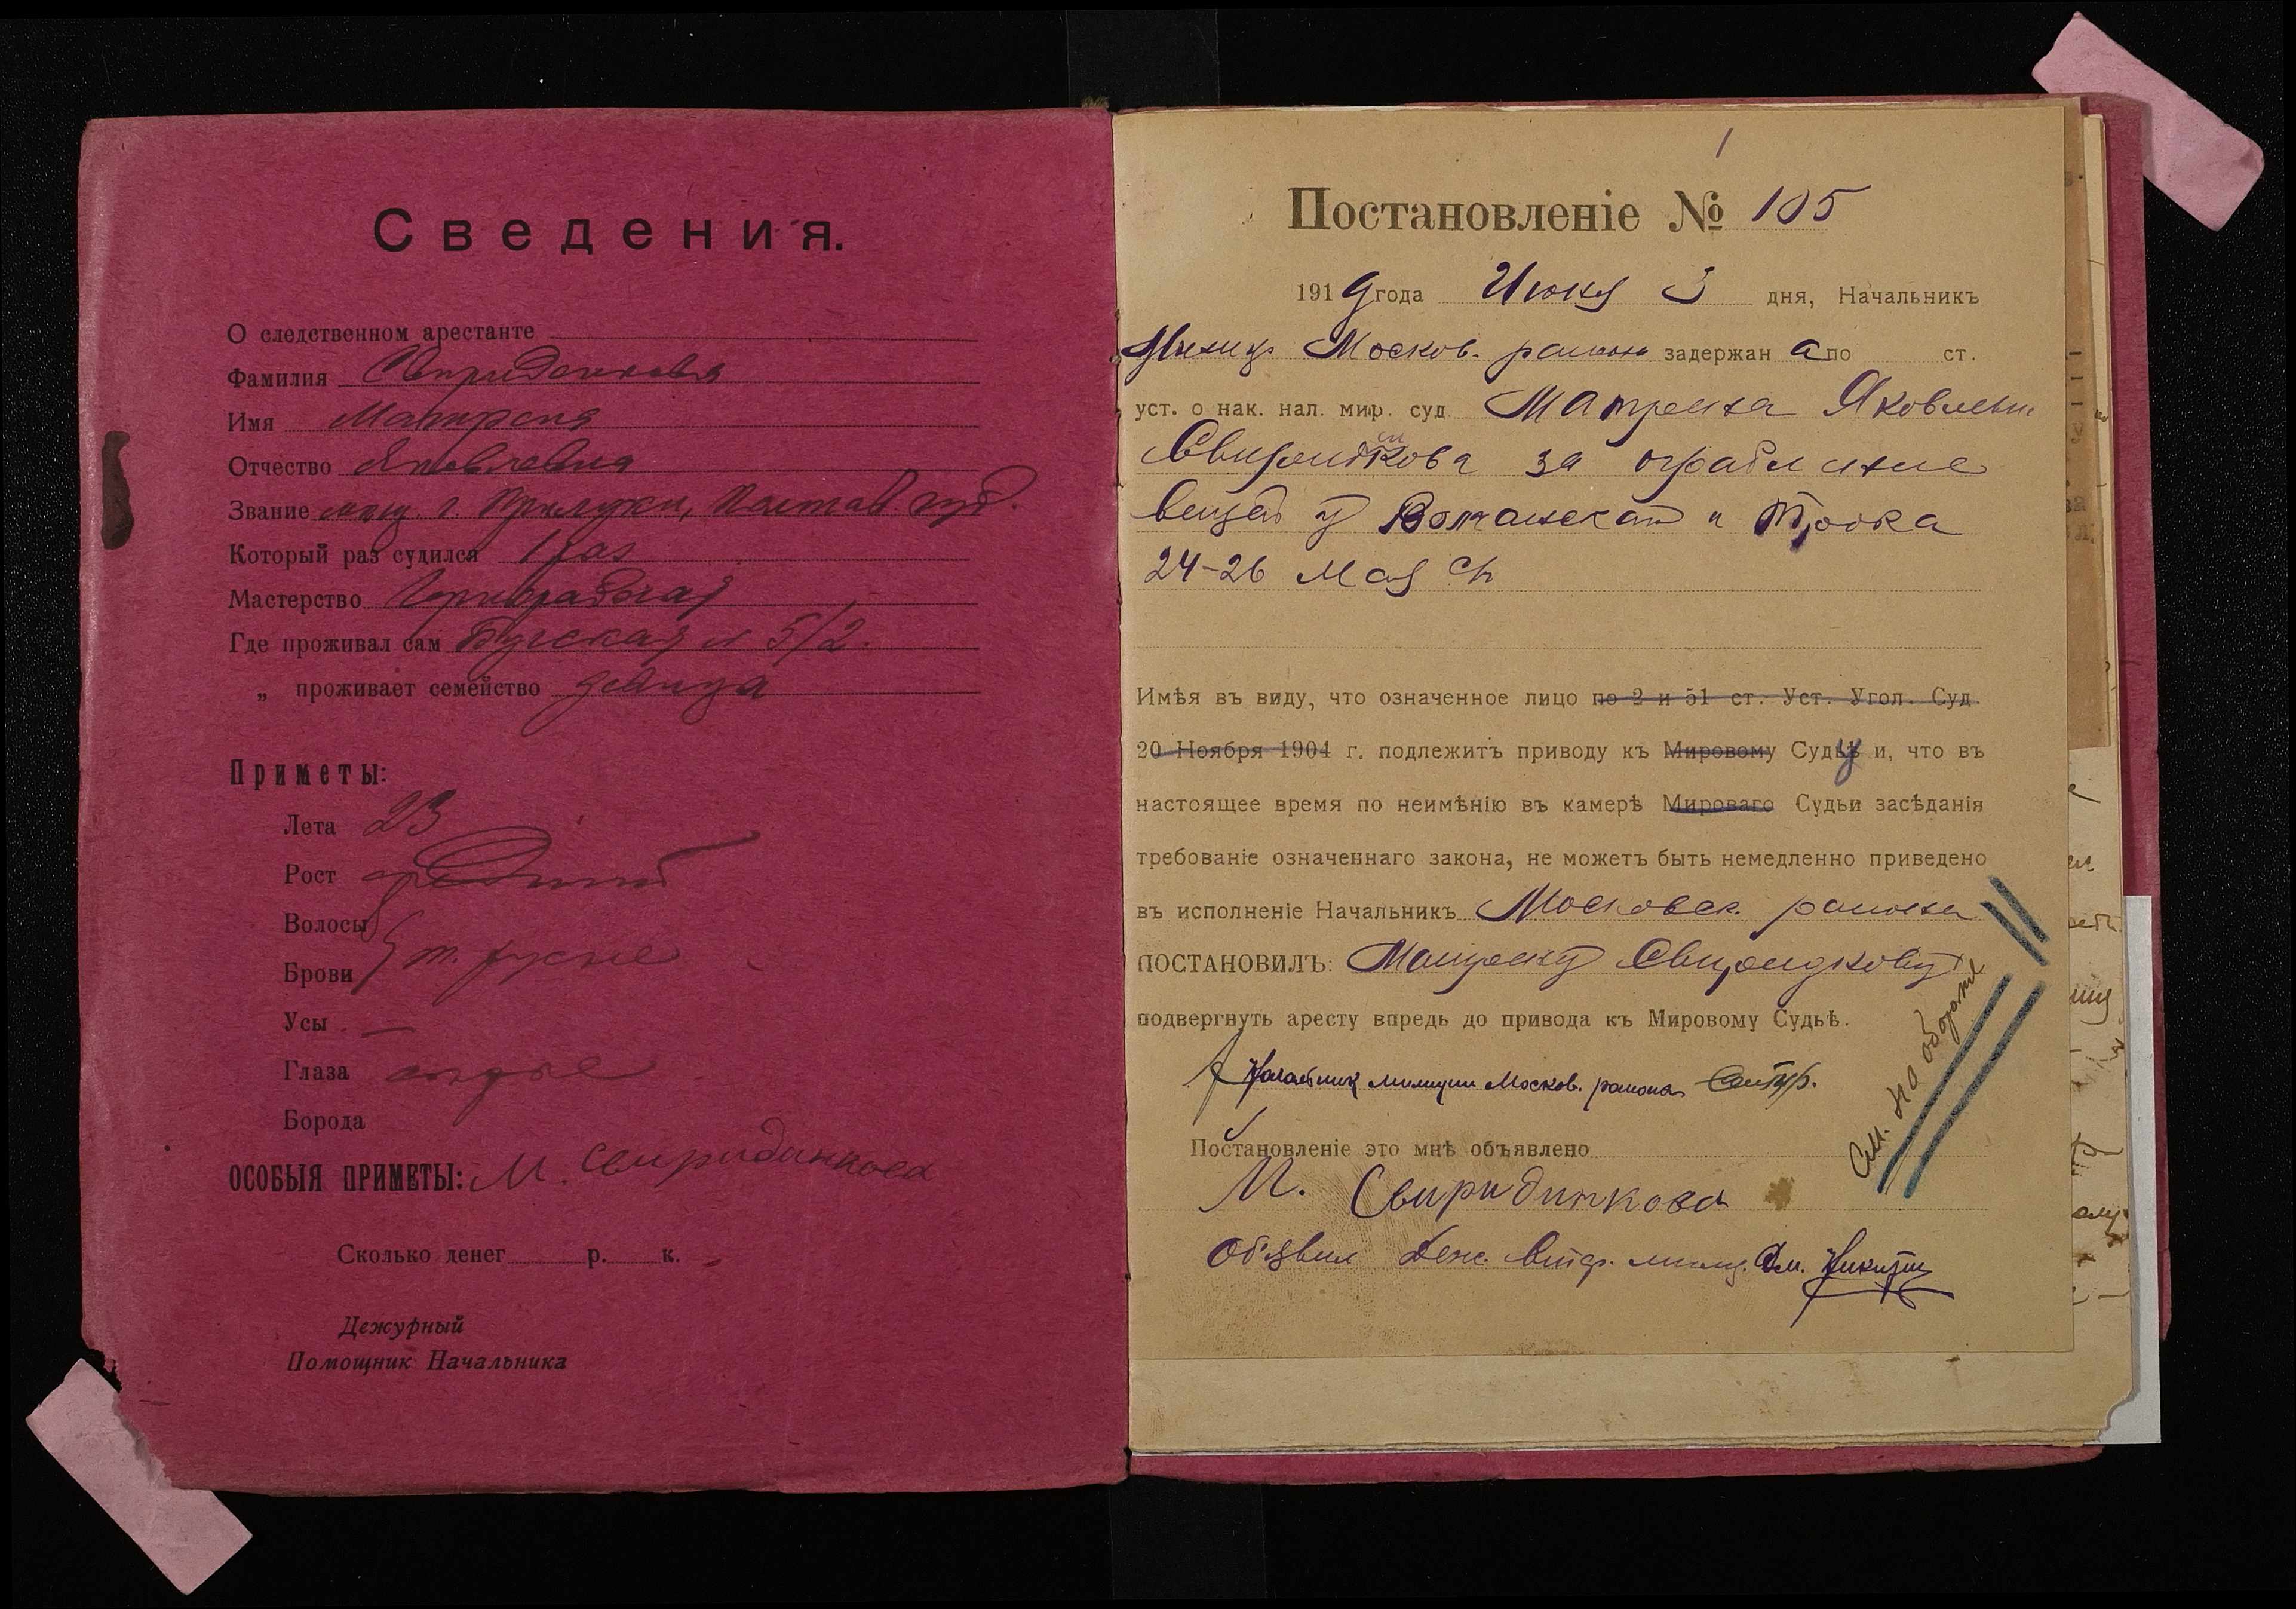 Сведения.
О следственном арестанте
Фамилия Свириденкова
Имя Матрена
Отчество Яковлевна
Звание мещ. г. Прилуки, Полтав. губ.
Который раз судился 1 раз
Мастерство
Где проживал сам Бугская № 5/2.
„ проживает семейство девица
Приметы:
Лета 23
Рост средний
Волосы
Брови т. русые
Усы —
Глаза серые
Борода
ОСОБЫЯ ПРИМЕТЫ: М. Свириденкова
Сколько денег р. к.
Дежурный
Помощник Начальника
1
Постановленіе № 105
1919 года Июня 3 дня, Начальникъ
Милиц. Москов. района задержан а по ст.
уст. о нак. нал. мир. суд Матрена Яковлевн
за ограбление
вещей у и
24-26 Мая
Имѣя въ виду, что означенное лицо по 2 и 51 ст. Уст. Угол. Суд.
20 Ноября 1904 г. подлежитъ приводу къ Мировому Суду и, что въ
настоящее время по неимѣнію въ камерѣ Мироваго Судьи засѣданія
требованіе означеннаго закона, не можетъ быть немедленно приведено
въ исполненіе Начальникъ Московск. района
ПОСТАНОВИЛЪ: Матрену
подвергнуть аресту впредь до привода къ Мировому Судьѣ.
Начальник милиции Москов. района
См. на обороте
Постановленіе это мнѣ объявлено
М. Свиридинкова
Об'явил Деж. милиц. Никитин